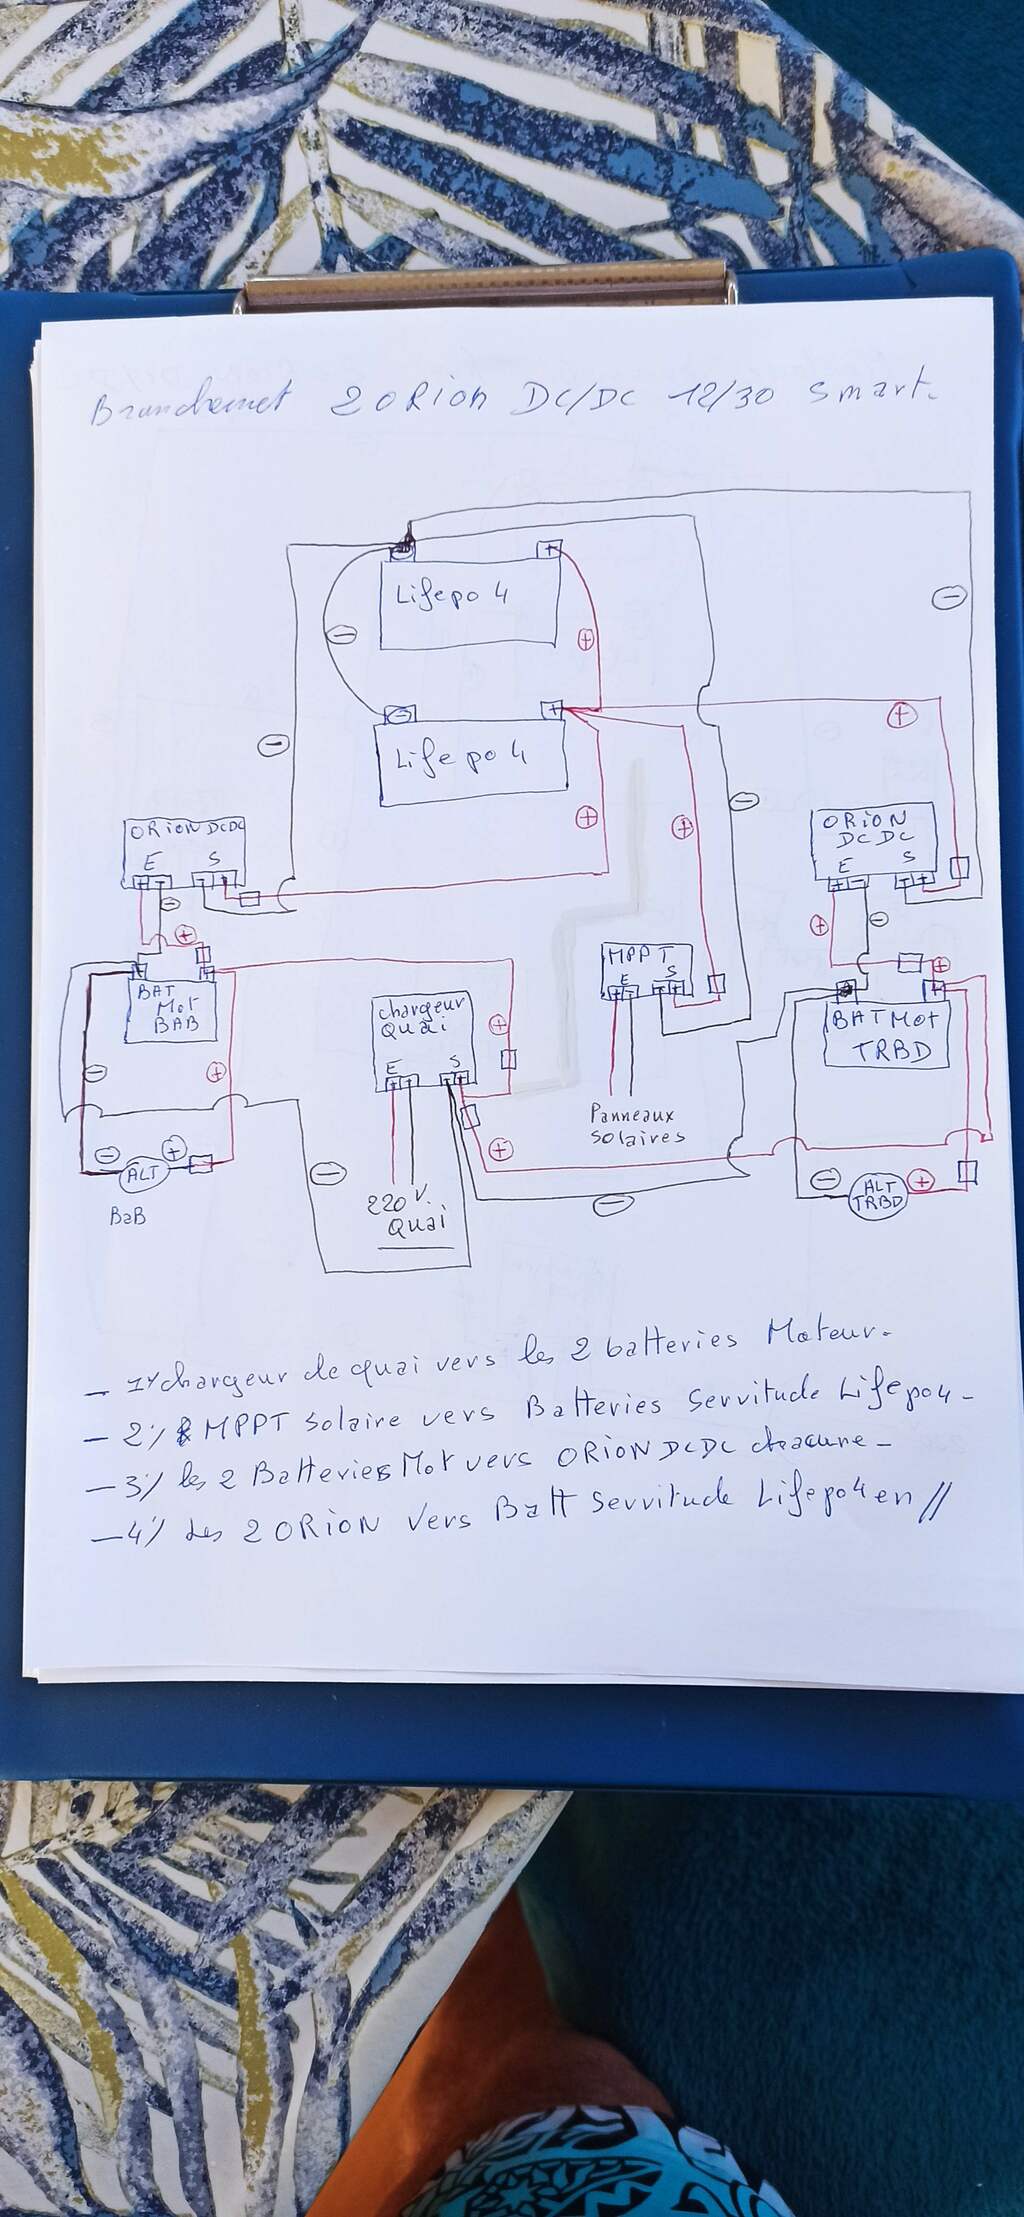 Branchemet 2 ORion DC/DC 12/30 Smart.
+
Lifepo 4
-
+
-
+
-
+
Lifepo 4
-
+
+
-
ORiON DCDC
E S
ORiON
DC DC
E S
-
+
+
-
+
MPPT
E S
BAT
Mot
BAB
chargeur
Quai
E S
+
BAT Mot
TRBD
-
+
Panneaux
Solaires
+
- +
ALT
BaB
-
220 V.
Quai
-
- ALT +
TRBD
- 1% chargeur de quai vers les 2 batteries Moteur.
- 2% MPPT Solaire vers Batteries Servitude Lifepo4 -
- 3% les 2 Batteries Mot vers ORiON DCDC chacune -
- 4% Les 2 ORiON vers Batt Servitude Lifepo4 en //